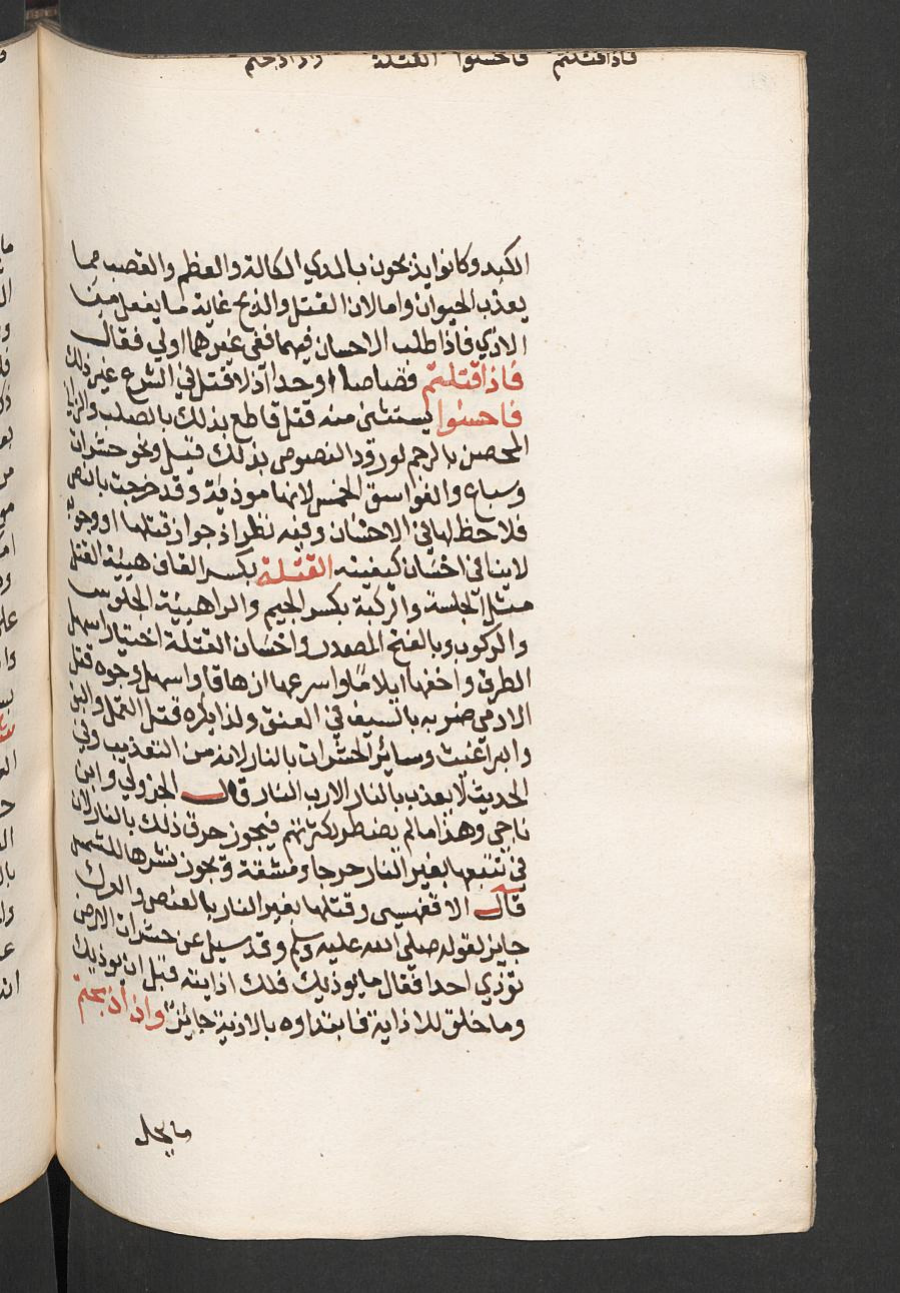 فاذا قتلتم فاحسنوا القتلة واذا ذبحتم
الكبد وكانوا يذبحون بالمدي الكالة والعظم والقصب مما
يعذب الحيوان واما لان القتل والذبح غاية ما يفعل من
الاذي فاذا طلب الاحسان فيهما ففي غيرهما اولي فقال
فاذا قتلتم قصاصا او حدا اذ لا قتل في الشرع غير ذلك
فاحسنوا يستثنى منه قتل قاطع بذلك بالصلب والزاني
المحصن بالرجم لورود النصوص بذلك قيل ونحو حشرات
وسباع والفواسق الخمس لانها موذية وقد خرجت بالنص
فلا حظ لها في الاحسان وفيه نظر اذ جواز قتلها او وجوبه
لاينافي احسان كيفيته القتلة بكسر القاف هيئة القتل
مثل الجلسة والركبة بكسر الجيم والرا هيئة الجلوس
والركوب وبالفتح المصدر واحسان القتلة اختيار اسهل
الطرق واخفها ايلاما واسرعها ازهاقا واسهل وجوه قتل
الادمي ضربه بالسيف في العنق ولذا يكره قتل القمل والبق
والبراغيث وساير الحشرات بالنار لانه من التعذيب وفي
الحديث لا يعذب بالنار الا رب النار قال الجزولي وابن
ناجي وهذا ما لم يضطر لكثرتهم فيجوز حرق ذلك بالنار لان
في تتبعها بغير النار حرجا ومشقة ويجوز نشرها للشمس
قال الاقفهسي وقتلها بغير النار بالقعص والفرك
جايز لقوله صلي الله عليه وسلم وقد سيل عن حشرات الارض
توذي احدا فقال ما يوذيك فلك اذايته قبل ان يوذيك
وما خلق للاذاية فابتداوه بالاذية جائز واذا ذبحتم
ما يحل